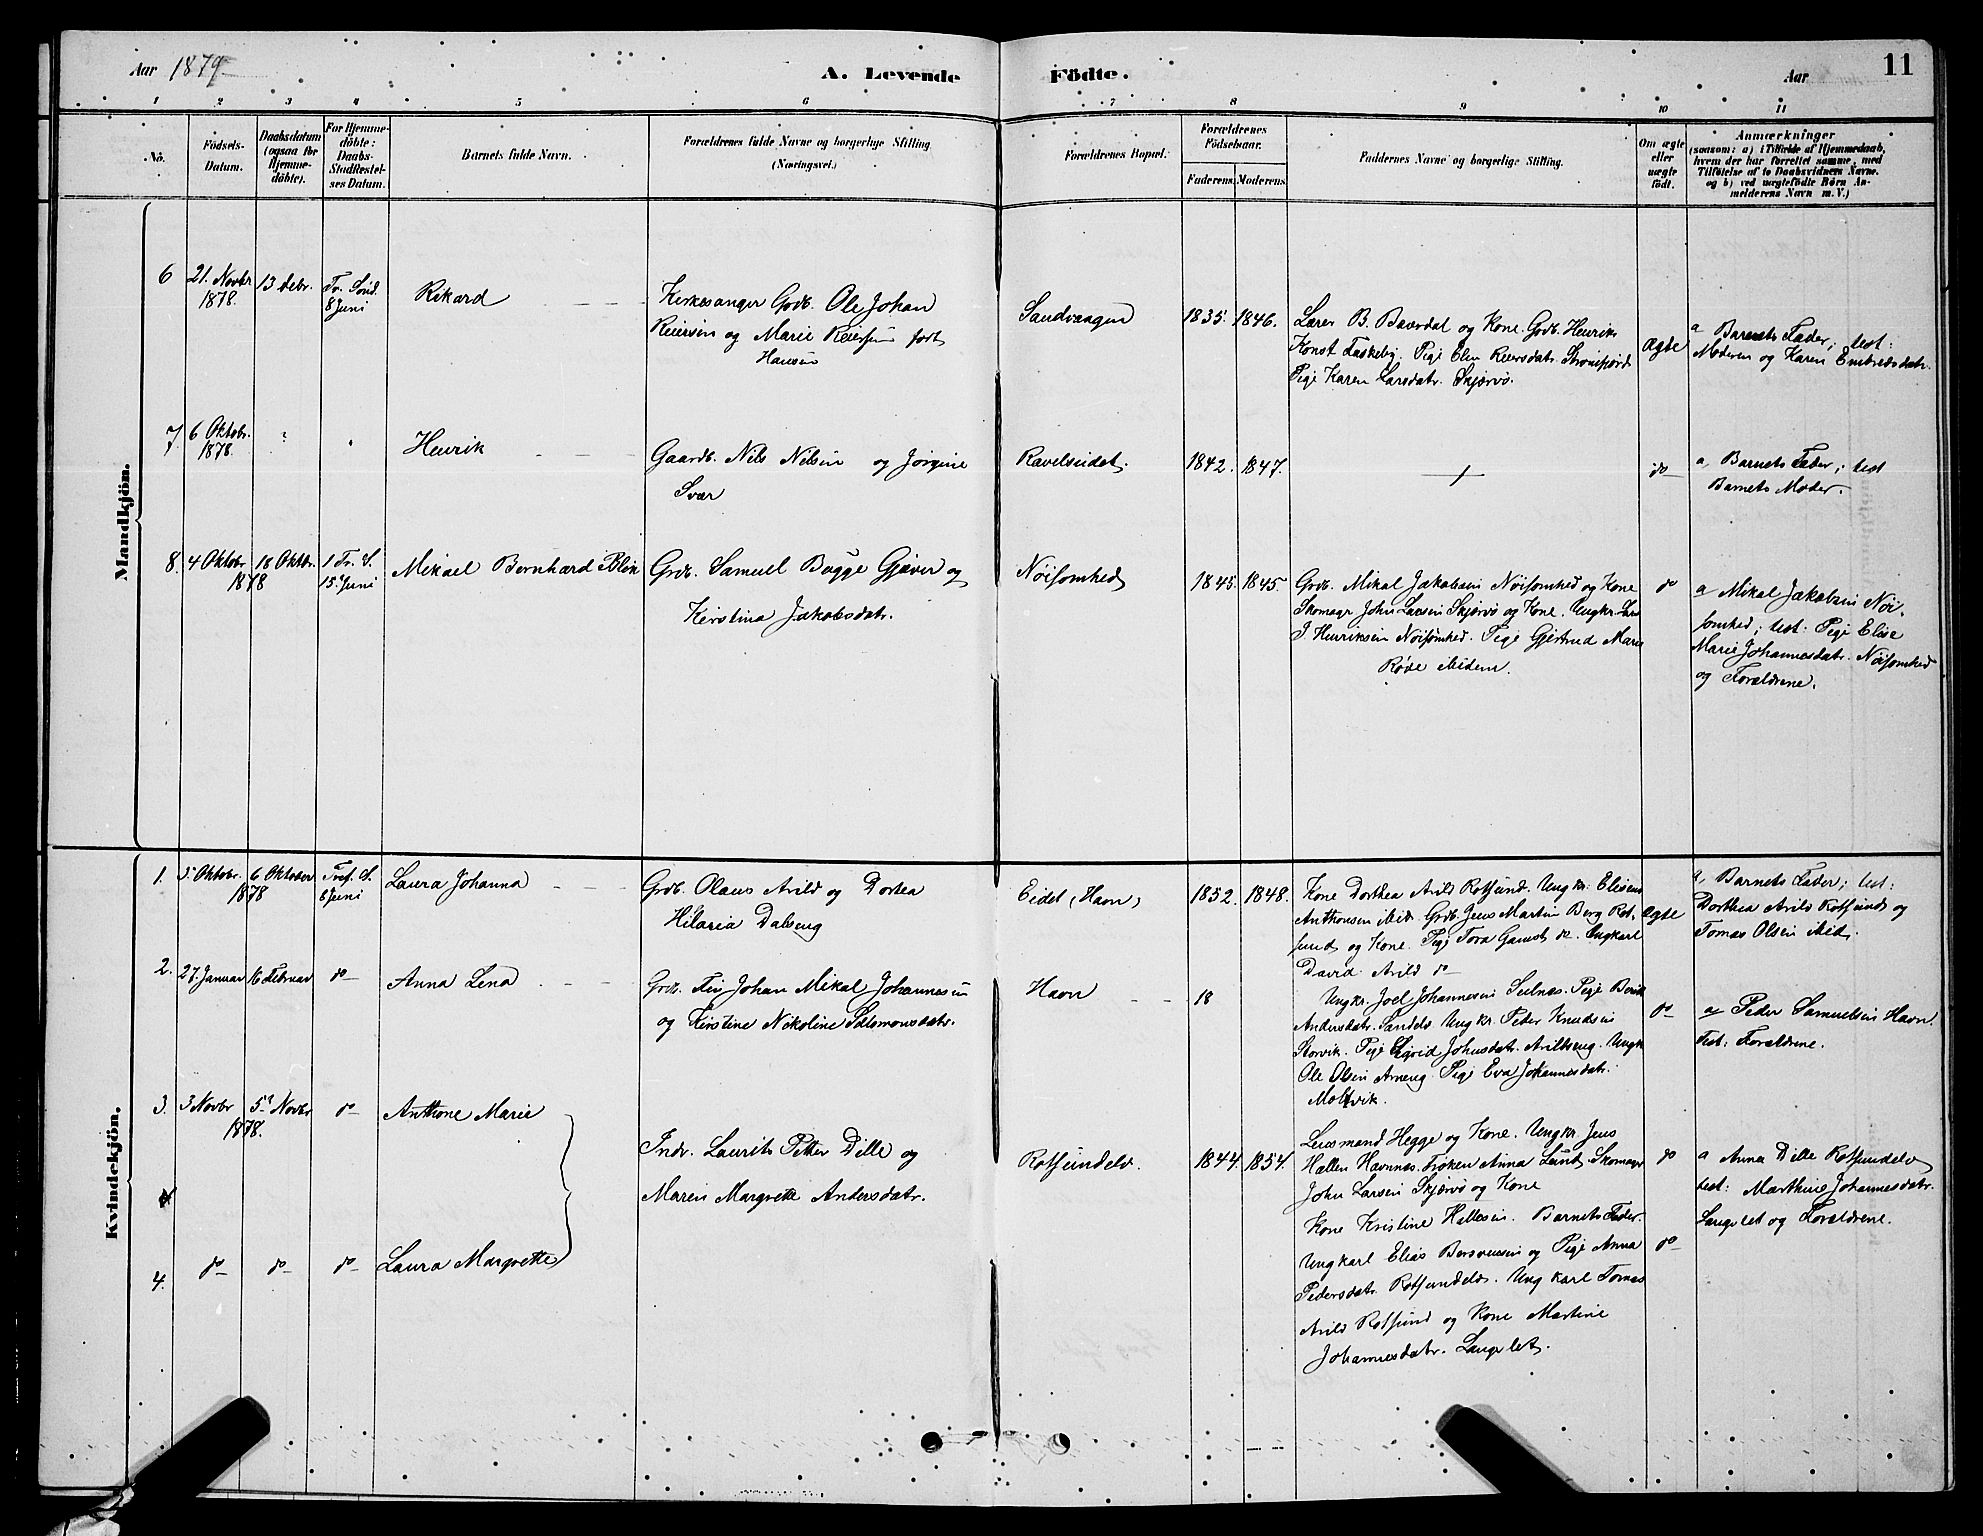 Aar 1879
A. Levende
Födte.
Aar
11
1 2 3 4 5 6 7 8 9 10 11
No.
Födsels-
Datum.
Daabsdatum
(ogsaa for
Hjemme-
döbte).
For Hjemme-
döbte:
Daabs-
Stadfæstel-
ses Datum.
Barnets fulde Navn.
Forældrenes fulde Navne og borgerlige Stilling
(Næringsvei.)
Forældrenes Bopæl.
Forældrenes
Födselsaar.
Faderens. Moderens.
Faddernes Navne og borgerlige Stilling.
Om ægte
eller
uægte
födt.
Anmærkninger
(saasom: a) i Tilfælde af Hjemmedaab,
hvem der har forrettet samme, med
Tilföielse af to Daabsvidners Navne.
og b) ved uægtefödte Börn An-
melderens Navn m.V.)
Mandkjön.
6
21. Novbr
1878.
13 Debr.
Tr. Sönd.
8 Juni
Rikard
Kirkesanger Grdb. Ole Johan
Reiersen og Marie Reiersen födt
Hansen
Sandvaagen
1835. 1846.
Lærer B. Baardal og Kone. Grdb. Henrik
Konst Taskeby. Pige Elen Reiersdatr.
Pige Karen Larsdatr. Skjervö.
Ægte
a Barnets Fader; test:
Moderen og Karen Embretsdatr.
7.
6 Oktobr.
1878.
Henrik
Gaardb. Nils Nilsen og Jörgine
Svær
Ravelseidet.
1842. 1847.
do
a, Barnets Fader; test
Barnets Moder.
8.
4 Oktobr
18 Oktbr.
1878
1 Tr. S.
15 Juni
Mikael Bernhard Blix
Grdb. Samuel Bugge Gjæver og
Kirstina Jakobsdatr.
Nöisomhed
1845. 1845.
Grdb. Mikal Jakobsen Nöisomhed og Kone
Skomagr John Larsen Skjervö og Kone. Ungkr. Lars
J. Henriksen Nöisomhed. Pige Gjertrud Marie
Röde ibidem.
do
a Mikal Jakobsen Nöi-
somhed; test: Pige Elise
Marie Johannesdatr. Nöisomhed
og Forældrene.
Kvindekjön.
1.
5 Oktobr.
6 Oktober
1878
Tref. S.
8 Juni
Laura Johanna
Grdb. Olaus Arild og Dortea
Hilaria Dalseng
Eidet (Havn)
1852. 1848.
Kone Dorthea Arild Rotsund. Ungkr. Eliseus
Anthonsen ibid. Grdb. Jens Martin Berg Rot-
sund og Kone. Pige Tora Gamst do. Ungkarl
David Arild do
Ægte
a, Barnets Fader; test:
Dorthea Arild Rotsund og
Tomas Olsen ibid.
2.
27. Januar 16 Februar
do
Anna Lena
Grdb. Johan Mikal Johannesen
og Kirstine Nikoline Salomonsdatr.
Havn
18
Ungkr. Joel Johannesen Seelnæs. Pige Berit
Andersdatr. Sandelv Ungkr. Peder Knudsen
Storvik. Pige Sigrid Johnsdatr. Arildseng. Ungk
Ole Olsen Arneng. Pige Eva Johannesdatr.
Moltvik.
do
a Peder Samuelsen Havn.
Test: Forældrene.
3.
3 Novbr
5 Novbr
1878.
do
Anthone Marie
Indr. Laurits Petter Dille og
Maren Margrette Andersdatr.
Rotsundelv.
1844. 1854.
Lensmand Hegge og Kone. Ungkr. Jens
Hallen Havnnæs. Fröken Anna Lund. Skomagr
John Larsen Skjervö og Kone
do
a Anna Dille Rotsundelv
test: Marthine Johannesdatr.
Langslet og Forældrene.
4.
do do do
Laura Margrette
Kone Kristine Hallesen. Barnets Fader.
Ungkarl Elias Bersvensen og Pige Anna
Pedersdatr. Rotsundelv. Ungkarl Tomas
Arild Rotsund og Kone Martine
Johannesdatr. Langslet.
do